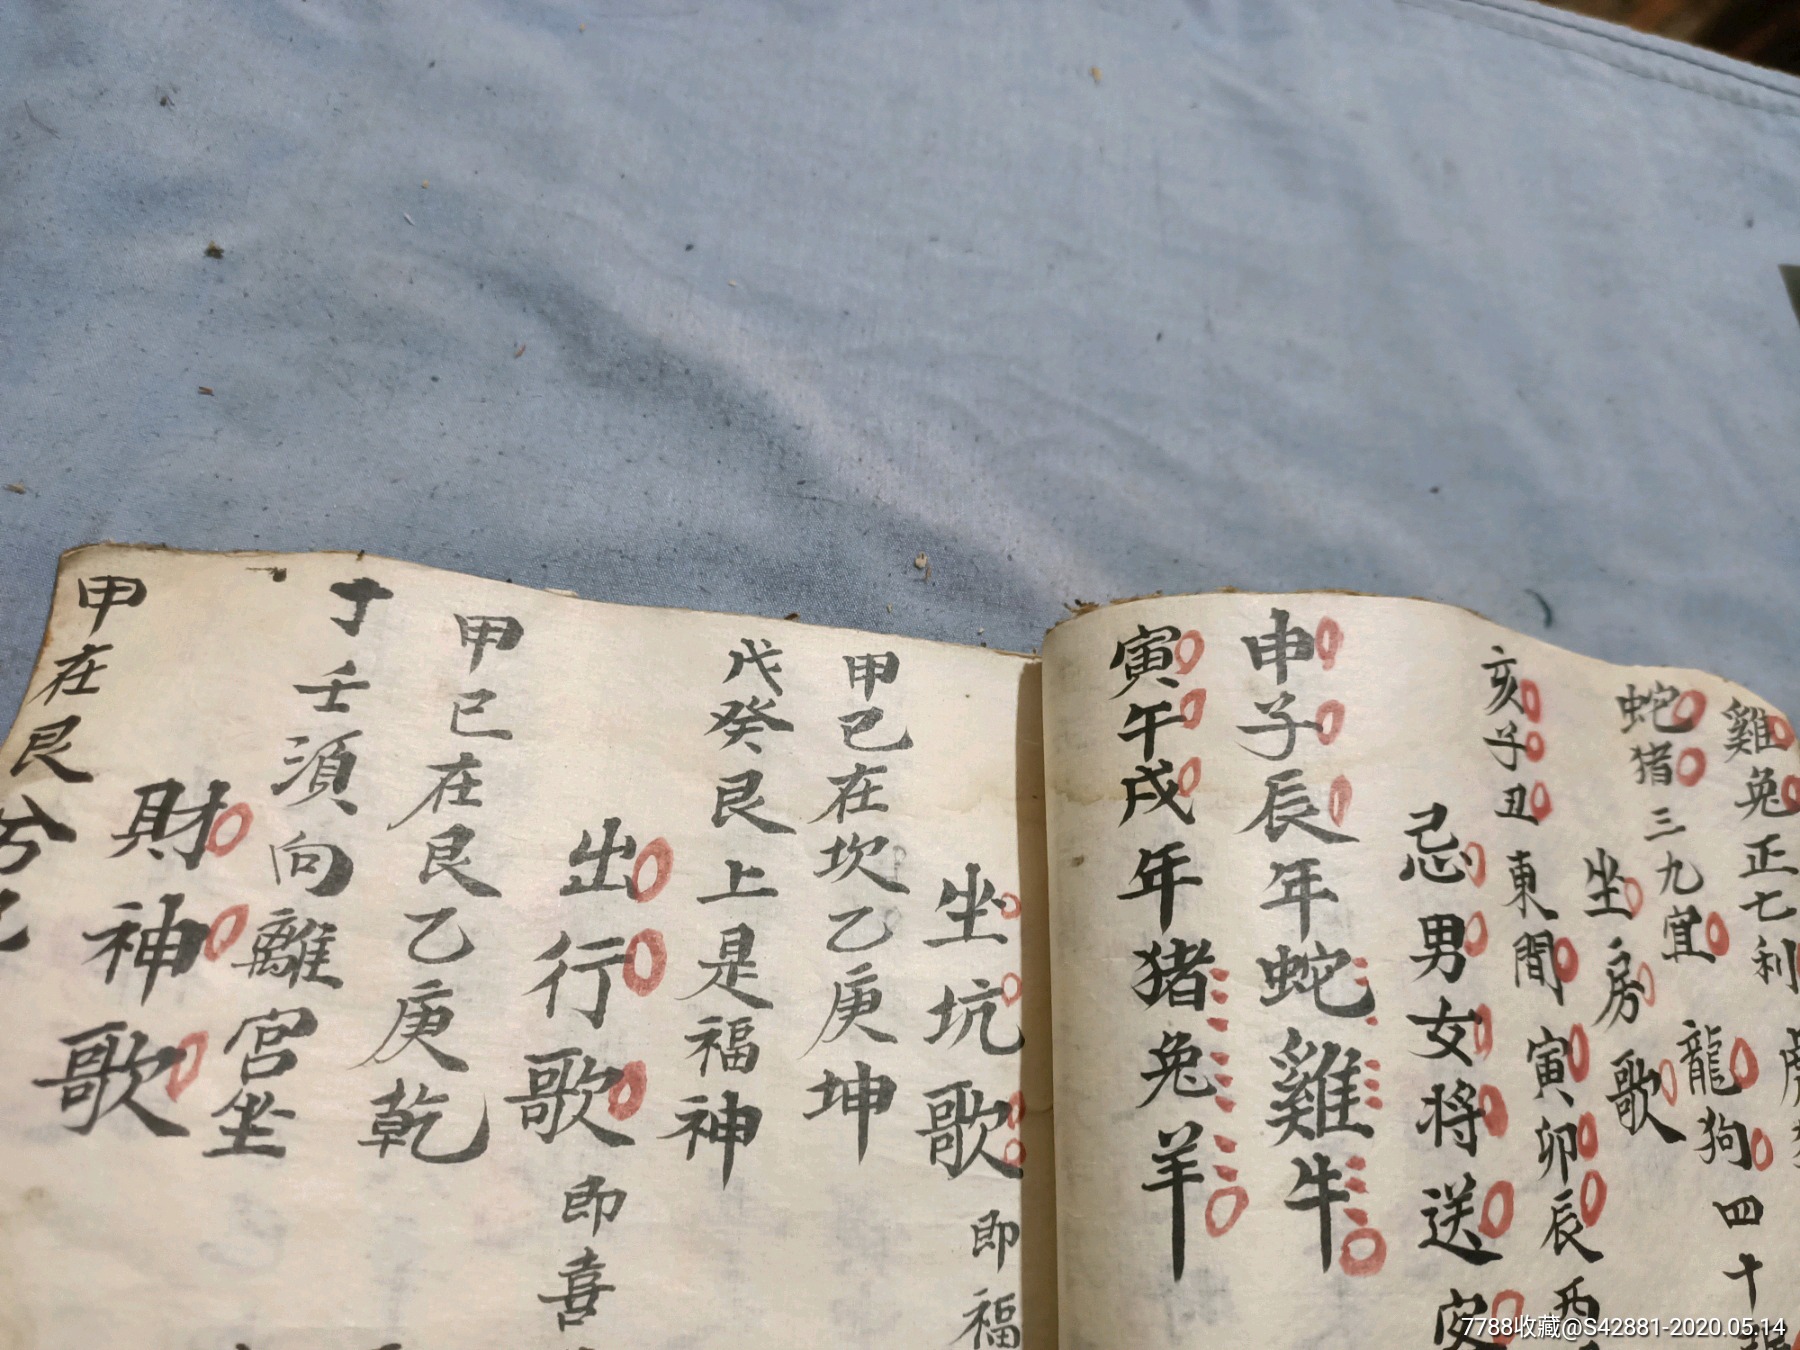 雞兔正七利
蛇猪三九宜
龍狗四十
坐房歌
亥子丑東間寅卯辰西
忌男女将送
申子辰年蛇雞牛
寅午戌年猪兔羊
坐坑歌即福
甲己在坎乙庚坤
戊癸艮上是福神
出行歌即喜
甲已在艮乙庚乾
丁壬須向離宮坐
財神歌
甲在艮兮
7788收藏@S42881-2020.05.14